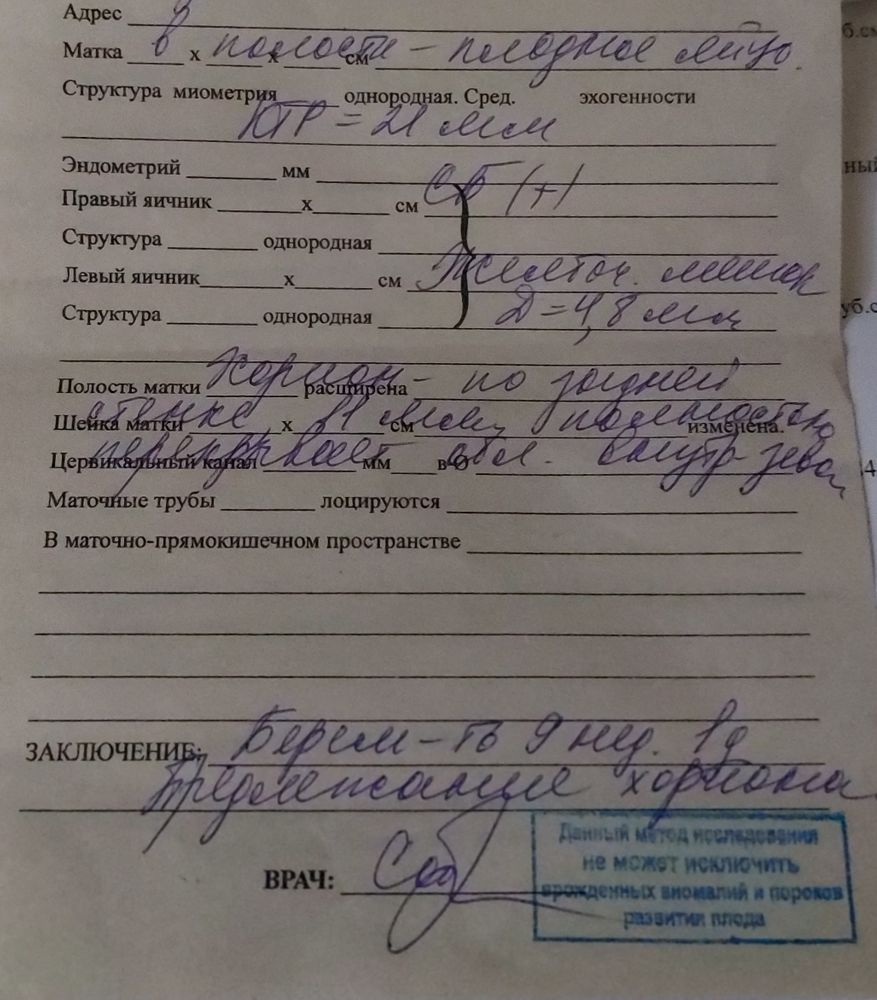 Адрес
Матка в х полости – плодное яйцо.
х см
Структура миометрия однородная. Сред. эхогенности
КТР = 21 мм
Эндометрий мм
СБ (+)
Правый яичник х см
Структура однородная
Левый яичник х см Желточ. мешок
Структура однородная Д = 4,8 мм
Полость матки Хорион – по задней
расширена
стенке 11 мм, полностью
Шейка матки х см изменена.
перекрывает обл. внутр зева
Цервикальный канал мм в О
Маточные трубы лоцируются
В маточно-прямокишечном пространстве
ЗАКЛЮЧЕНИЕ: Берем-ть 9 нед. 1д
Предлежание хориона
ВРАЧ:
Данный метод исследования
не может исключить
врожденных аномалий и пороков
развития плода
б.см
ный
уб.с
4